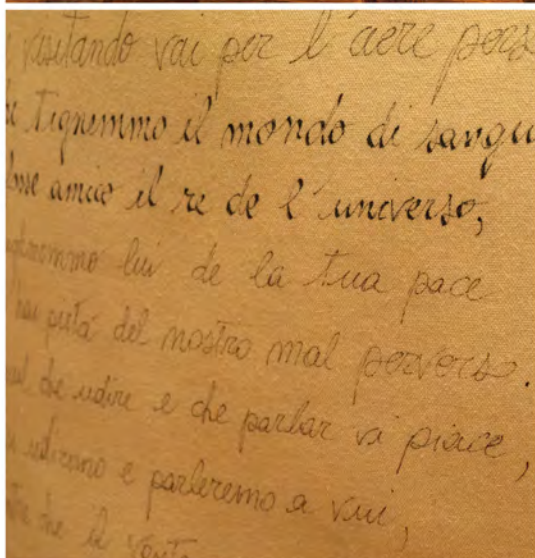 visitando vai per l'aere pers
tignemmo il mondo di sangu
fosse amico il re de l'universo,
lui de la tua pace
hai pietà del nostro mal perverso.
che udire e che parlar vi piace,
udiremo e parleremo a vui,
che il vento